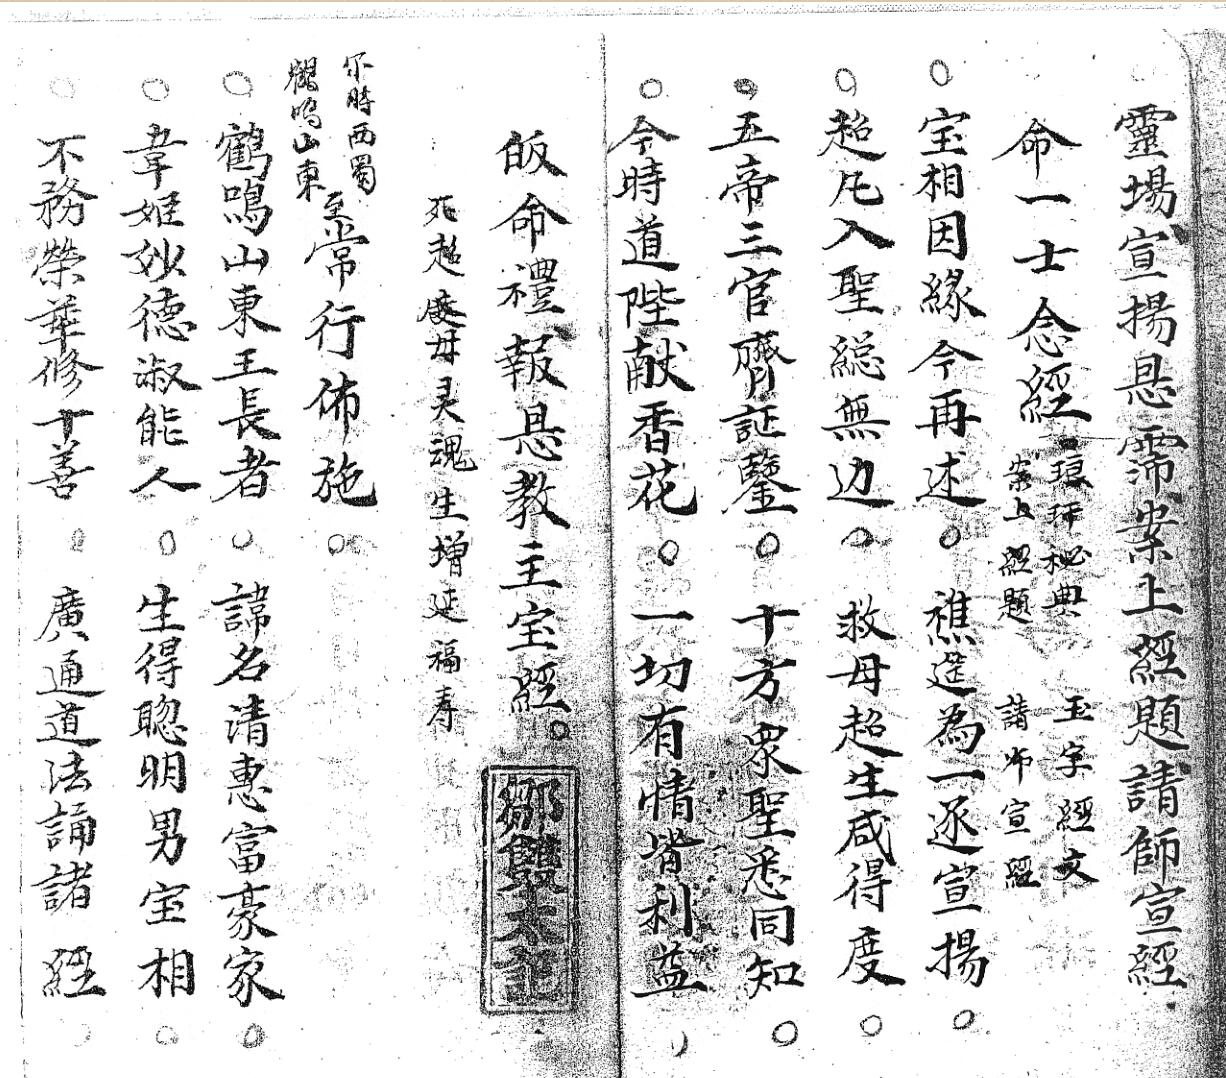 靈場宣揚息霈案上經題請師宣經
命一士念經
琅玕秘典 玉字經文
案上經題 請師宣經
宝相因緣今再述。 樵選為一丞宣揚。
超凢入聖総無边。 救母超生咸得度。
五帝三官齊証鑒。 十方衆聖悉同知。
今時道陞献香花。 一切有情皆利益。
皈命禮報恳教主宝經。
鄒雙太記
死超度母灵魂生增延福寿
尔時西蜀
鶴鳴山東
至常行佈施。
鶴鳴山東王長者。 諱名清惠富豪家。
韋姬妙德淑能人。 生得聰明男宝相。
不務榮華修十善。 廣通道法誦諸經。